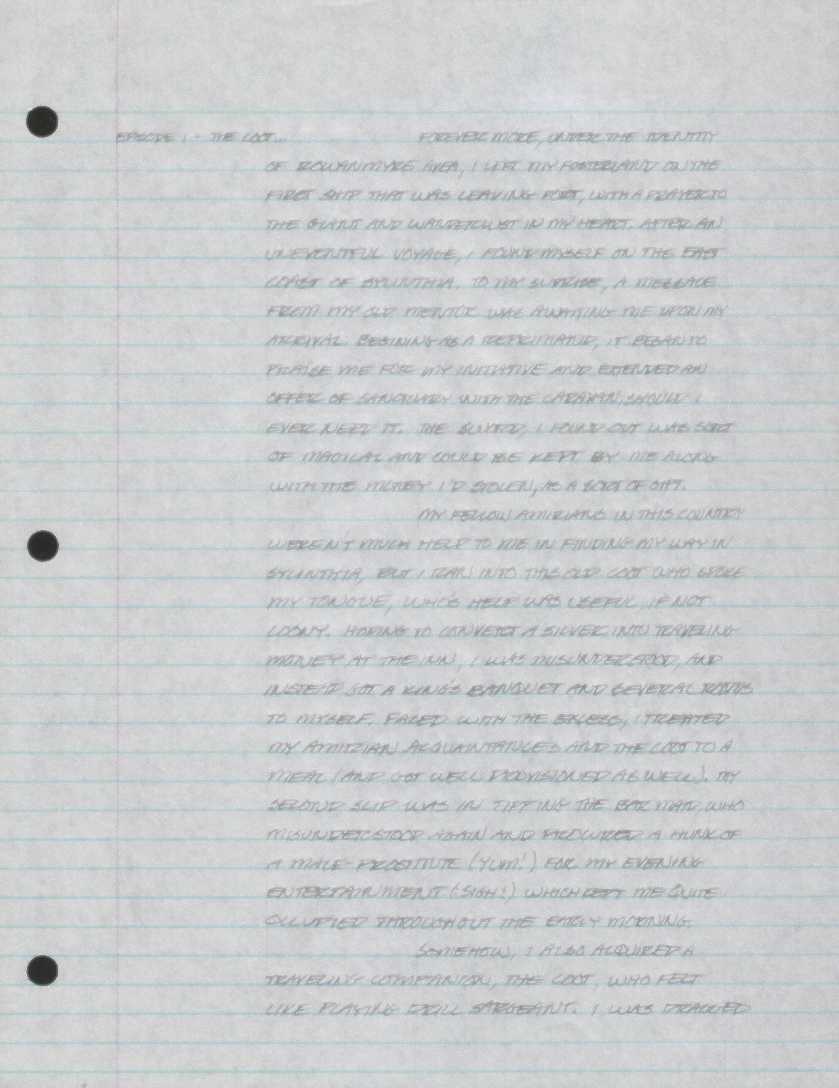 EPISODE 1 - THE COOT... FOREVER MORE, UNDER THE IDENTITY
OF ROWANMYRE AREA, I LEFT MY FOSTERLAND ON THE
FIRST SHIP THAT WAS LEAVING PORT, WITH A PRAYER TO
THE GIANT AND WANDERLUST IN MY HEART. AFTER AN
UNEVENTFUL VOYAGE, I FOUND MYSELF ON THE EAST
COAST OF SYLINTHIA. TO MY SURPRISE, A MESSAGE
FROM MY OLD MENTOR WAS AWAITING ME UPON MY
ARRIVAL. BEGINING AS A REPRIMAND, IT BEGAN TO
PRAISE ME FOR MY INITIATIVE AND EXTENDED AN
OFFER OF SANCTUARY WITH THE CARAVAN, SHOULD I
EVER NEED IT. THE SWORD, I FOUND OUT WAS SORT
OF MAGICAL AND COULD BE KEPT BY ME ALONG
WITH THE MONEY I'D STOLEN, AS A SORT OF GIFT.
MY FELLOW AMIRIANS IN THIS COUNTRY
WEREN'T MUCH HELP TO ME IN FINDING MY WAY IN
SYLINTHIA, BUT I RAN INTO THIS OLD COOT WHO SPOKE
MY TONGUE, WHO'S HELP WAS USEFUL, IF NOT
LOONY. HOPING TO CONVERT A SILVER INTO TRAVELING
MONEY AT THE INN, I WAS MISUNDERSTOOD, AND
INSTEAD GOT A KING'S BANQUET AND SEVERAL ROOMS
TO MYSELF. FACED WITH THE EXCESS, I TREATED
MY AMIRIAN ACQUAINTANCES AND THE COOT TO A
MEAL (AND GOT WELL PROVISIONED AS WELL). MY
SECOND SLIP WAS IN TIPPING THE BAR MAID, WHO
MISUNDERSTOOD AGAIN AND PROCURED A HUNK OF
A MALE PROSTITUTE (YUM!) FOR MY EVENING
ENTERTAINMENT (SIGH!) WHICH KEPT ME QUITE
OCCUPIED THROUGHOUT THE EARLY MORNING.
SOMEHOW, I ALSO ACQUIRED A
TRAVELING COMPANION, THE COOT, WHO FELT
LIKE PLAYING DRILL SARGEANT. I WAS DRAGGED